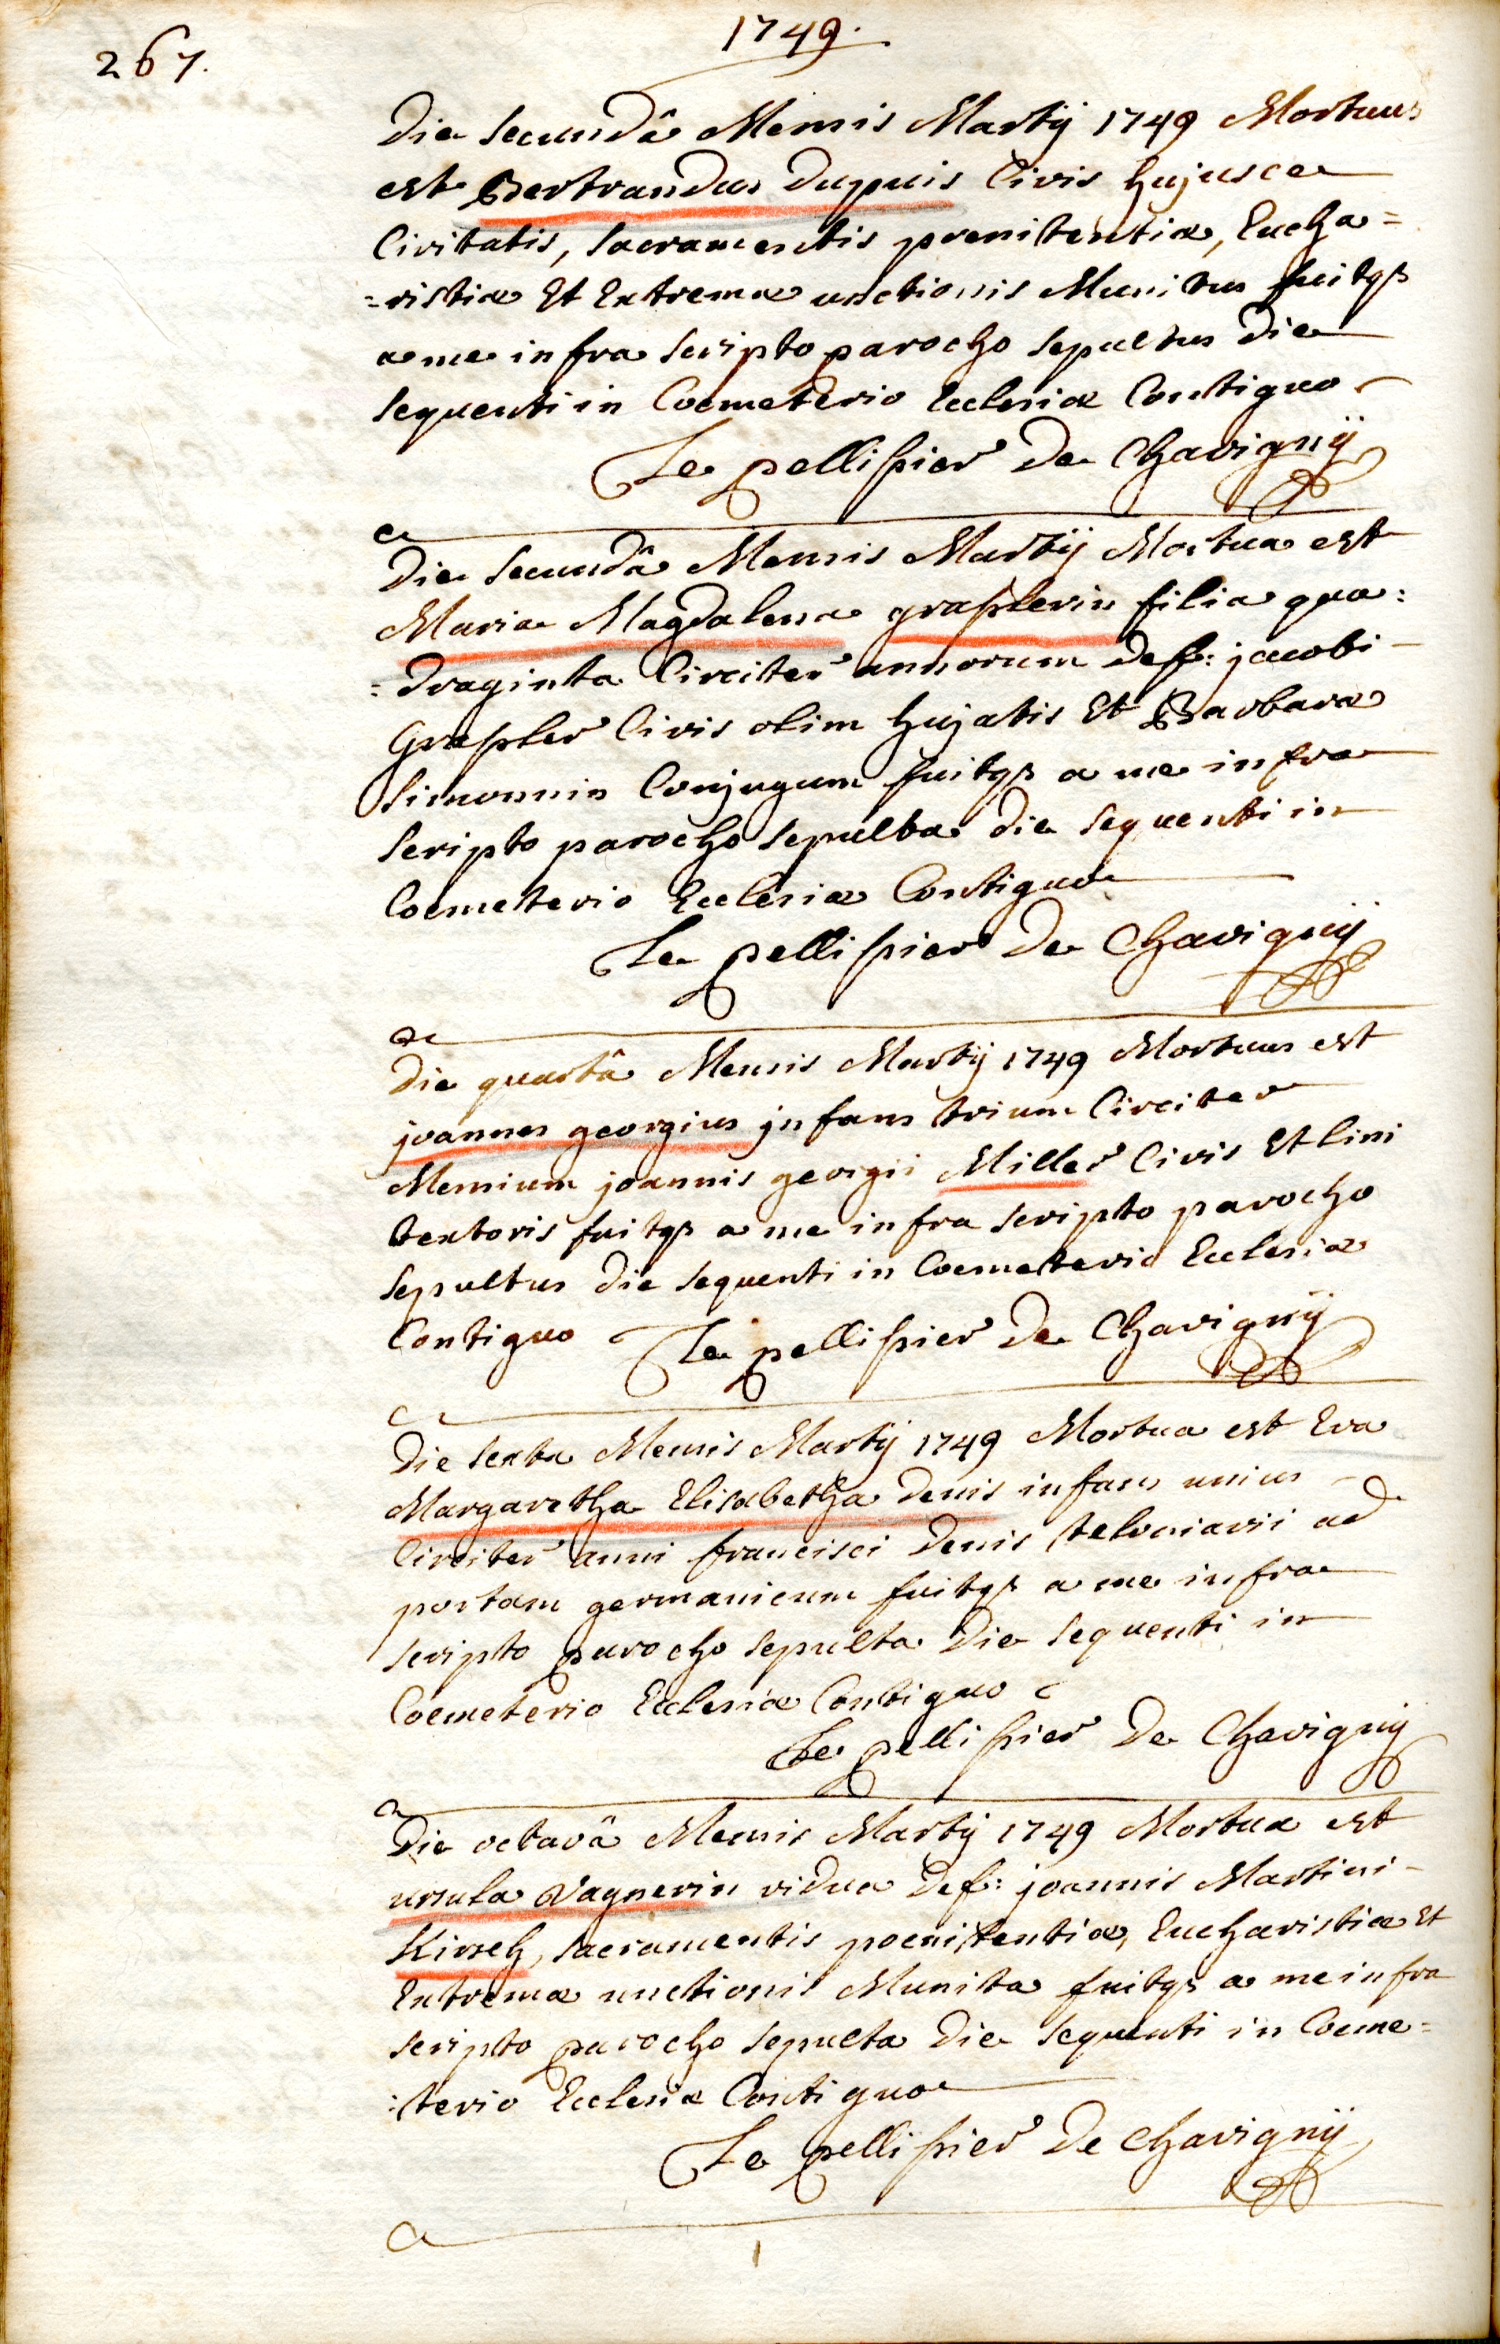 1749.
267.
Die secundâ Mensis Martÿ 1749 Mortuus
est Bertrandus Dupuis Civis hujusce
Civitatis, sacramentis poenitentiæ, Eucha=
=ristiæ Et Extremæ unctionis Munitus fuitqß
a me infra scripto parocho sepultus die
sequenti in Coemeterio Ecclesiæ Contiguo
Le pellißier De Chavignÿ
Die secundâ Mensis Martÿ Mortua est
Maria Magdalena graßlerin filia qua=
=draginta Circiter annorum def: jacobi
Graßler Civis olim hujatis Et Barbara
Simonnin Conjugum fuitqß a me infra
scripto parocho sepulta die sequenti in
Coemeterio Ecclesiæ Contiguo
Le pellißier De Chavignÿ
Die quartâ Mensis Martÿ 1749 Mortuus est
joannes georgius jnfans trium Circiter
Mensium joannis georgii Miller Civis Et lini
textoris fuitqß a me infra scripto parocho
sepultus die sequenti in Coemeterio Ecclesiæ
Contiguo Le pellißier De Chavignÿ
Die sexta Mensis Martÿ 1749 Mortua est Eva
Margaretha Elisabetha Denis infans unius
Circiter anni francisci Denis teloniarii ad
portam germanicum fuitqß a me infra
scripto parocho sepulta Die sequenti in
Coemeterio Ecclesiæ Contiguo
Le pellißier De Chavignÿ
Die octavâ Mensis Martÿ 1749 Mortua est
ursula Vagnerin vidua def: joannis Martini
Kirsch, sacramentis poenitentiæ, Eucharistiæ Et
Extremæ unctionis Munita fuitqß a me infra
scripto parocho sepulta Die sequenti in Coeme=
=terio Ecclesiæ Contiguo
Le pellißier De Chavignÿ